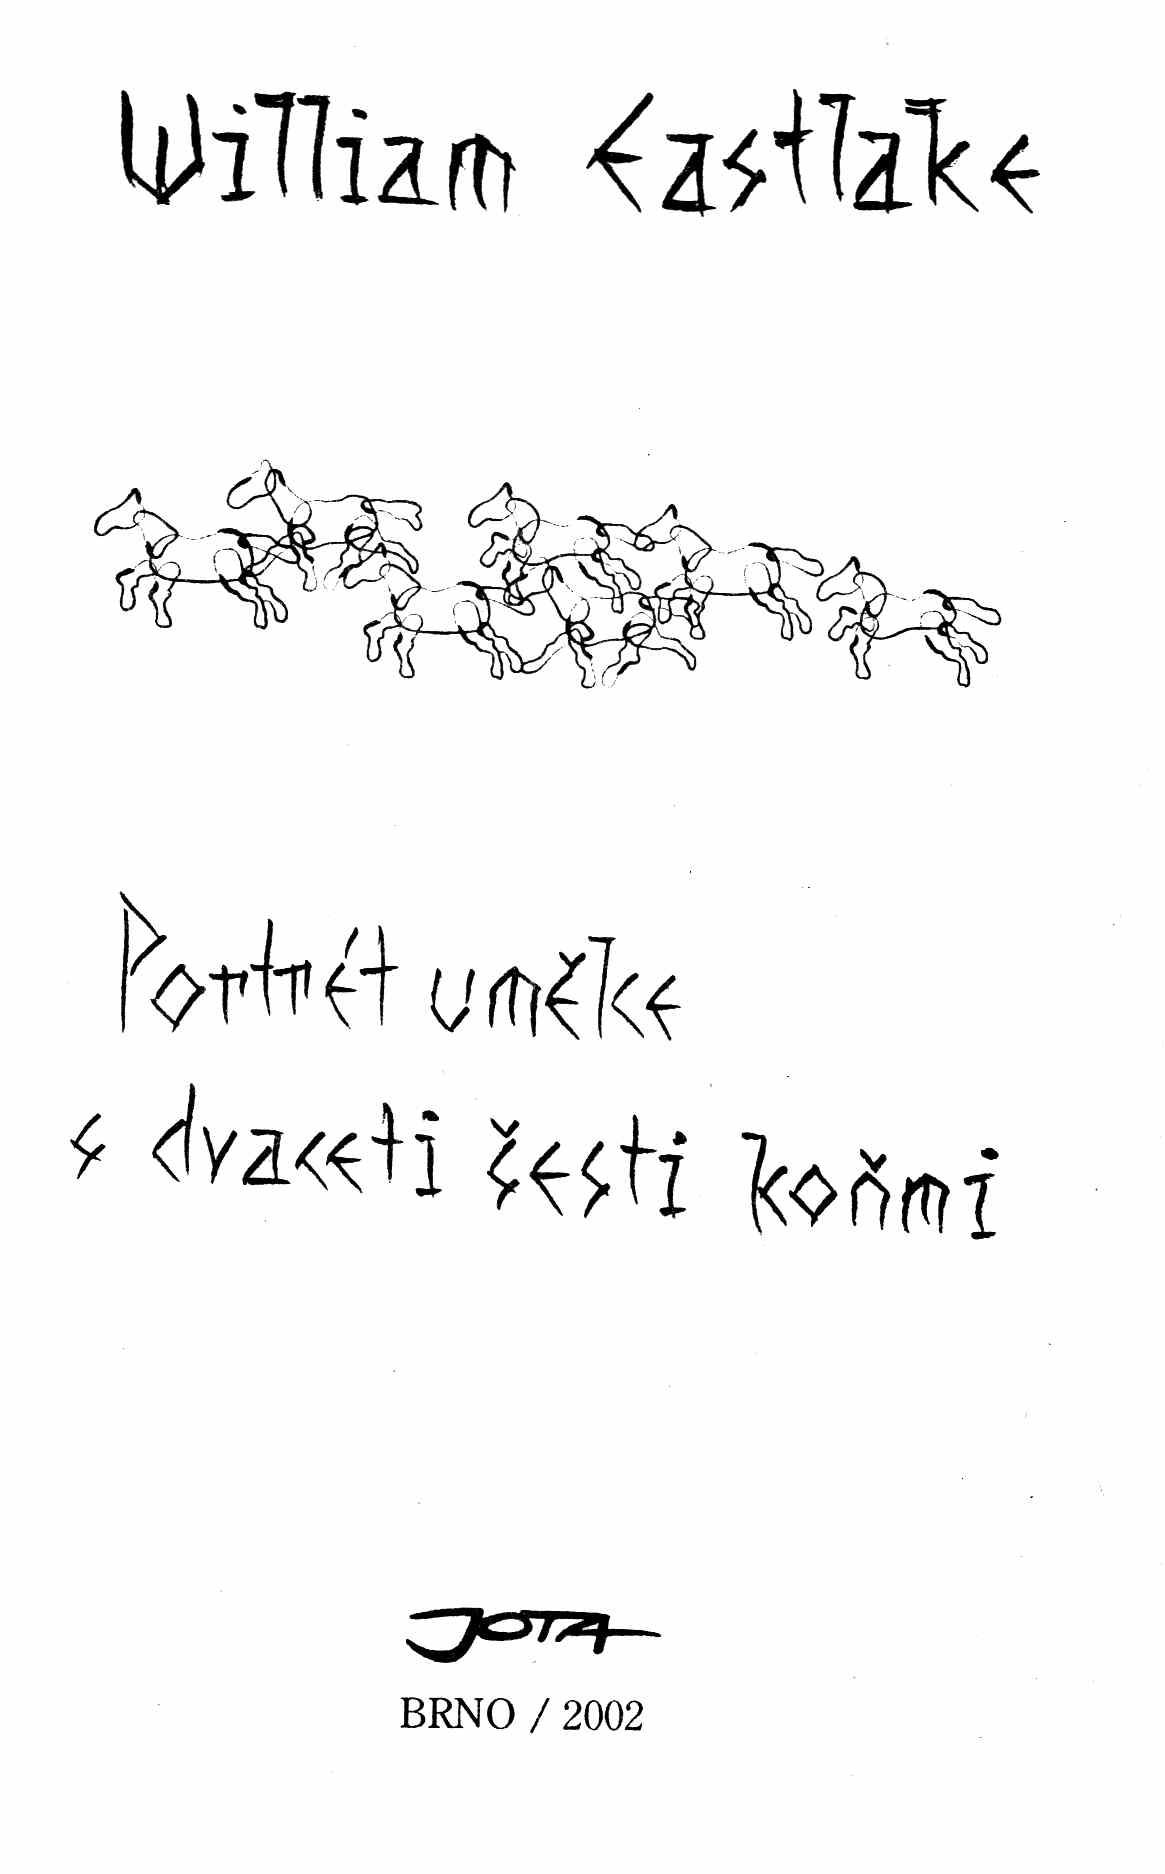 William Eastlake
Portrét umělce
s dvaceti šesti koňmi
JOTA
BRNO / 2002